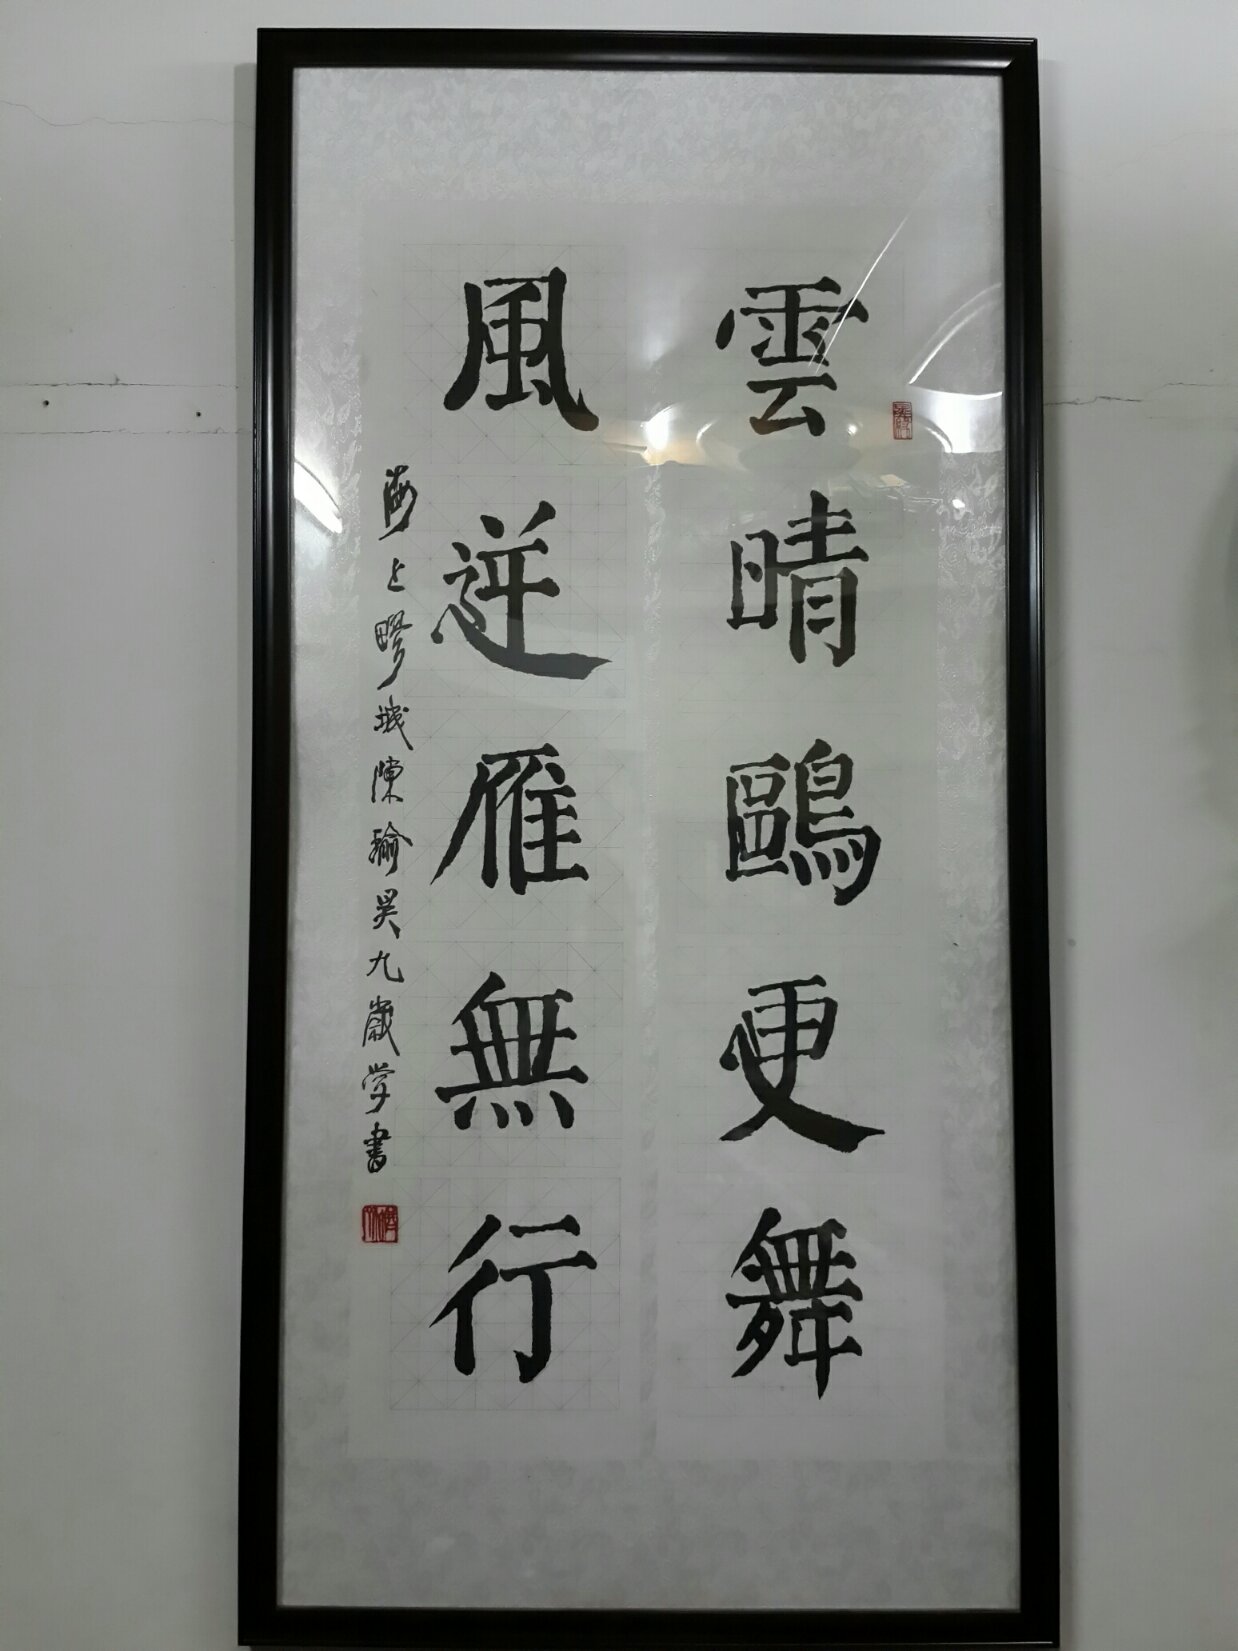 雲晴鷗更舞
風逆雁無行
海上疁城陳瑜昊九歲学書